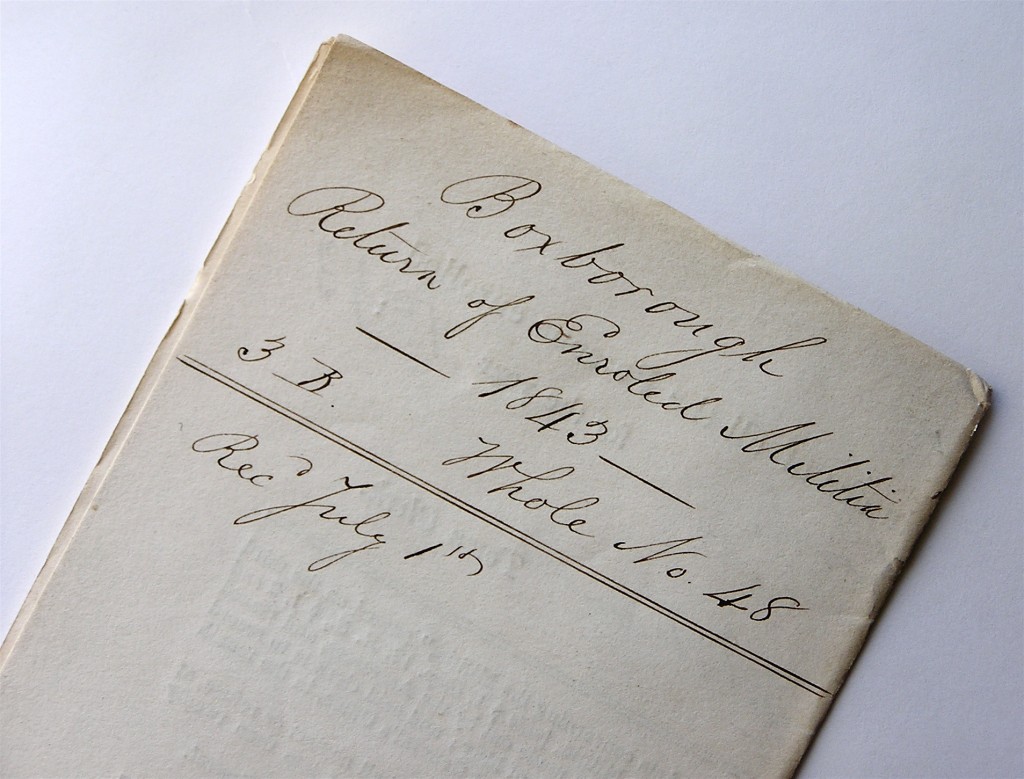 Boxborough
Return of Enroled Militia
— 1843 —
3 R. Whole No. 48
Recd July 1st